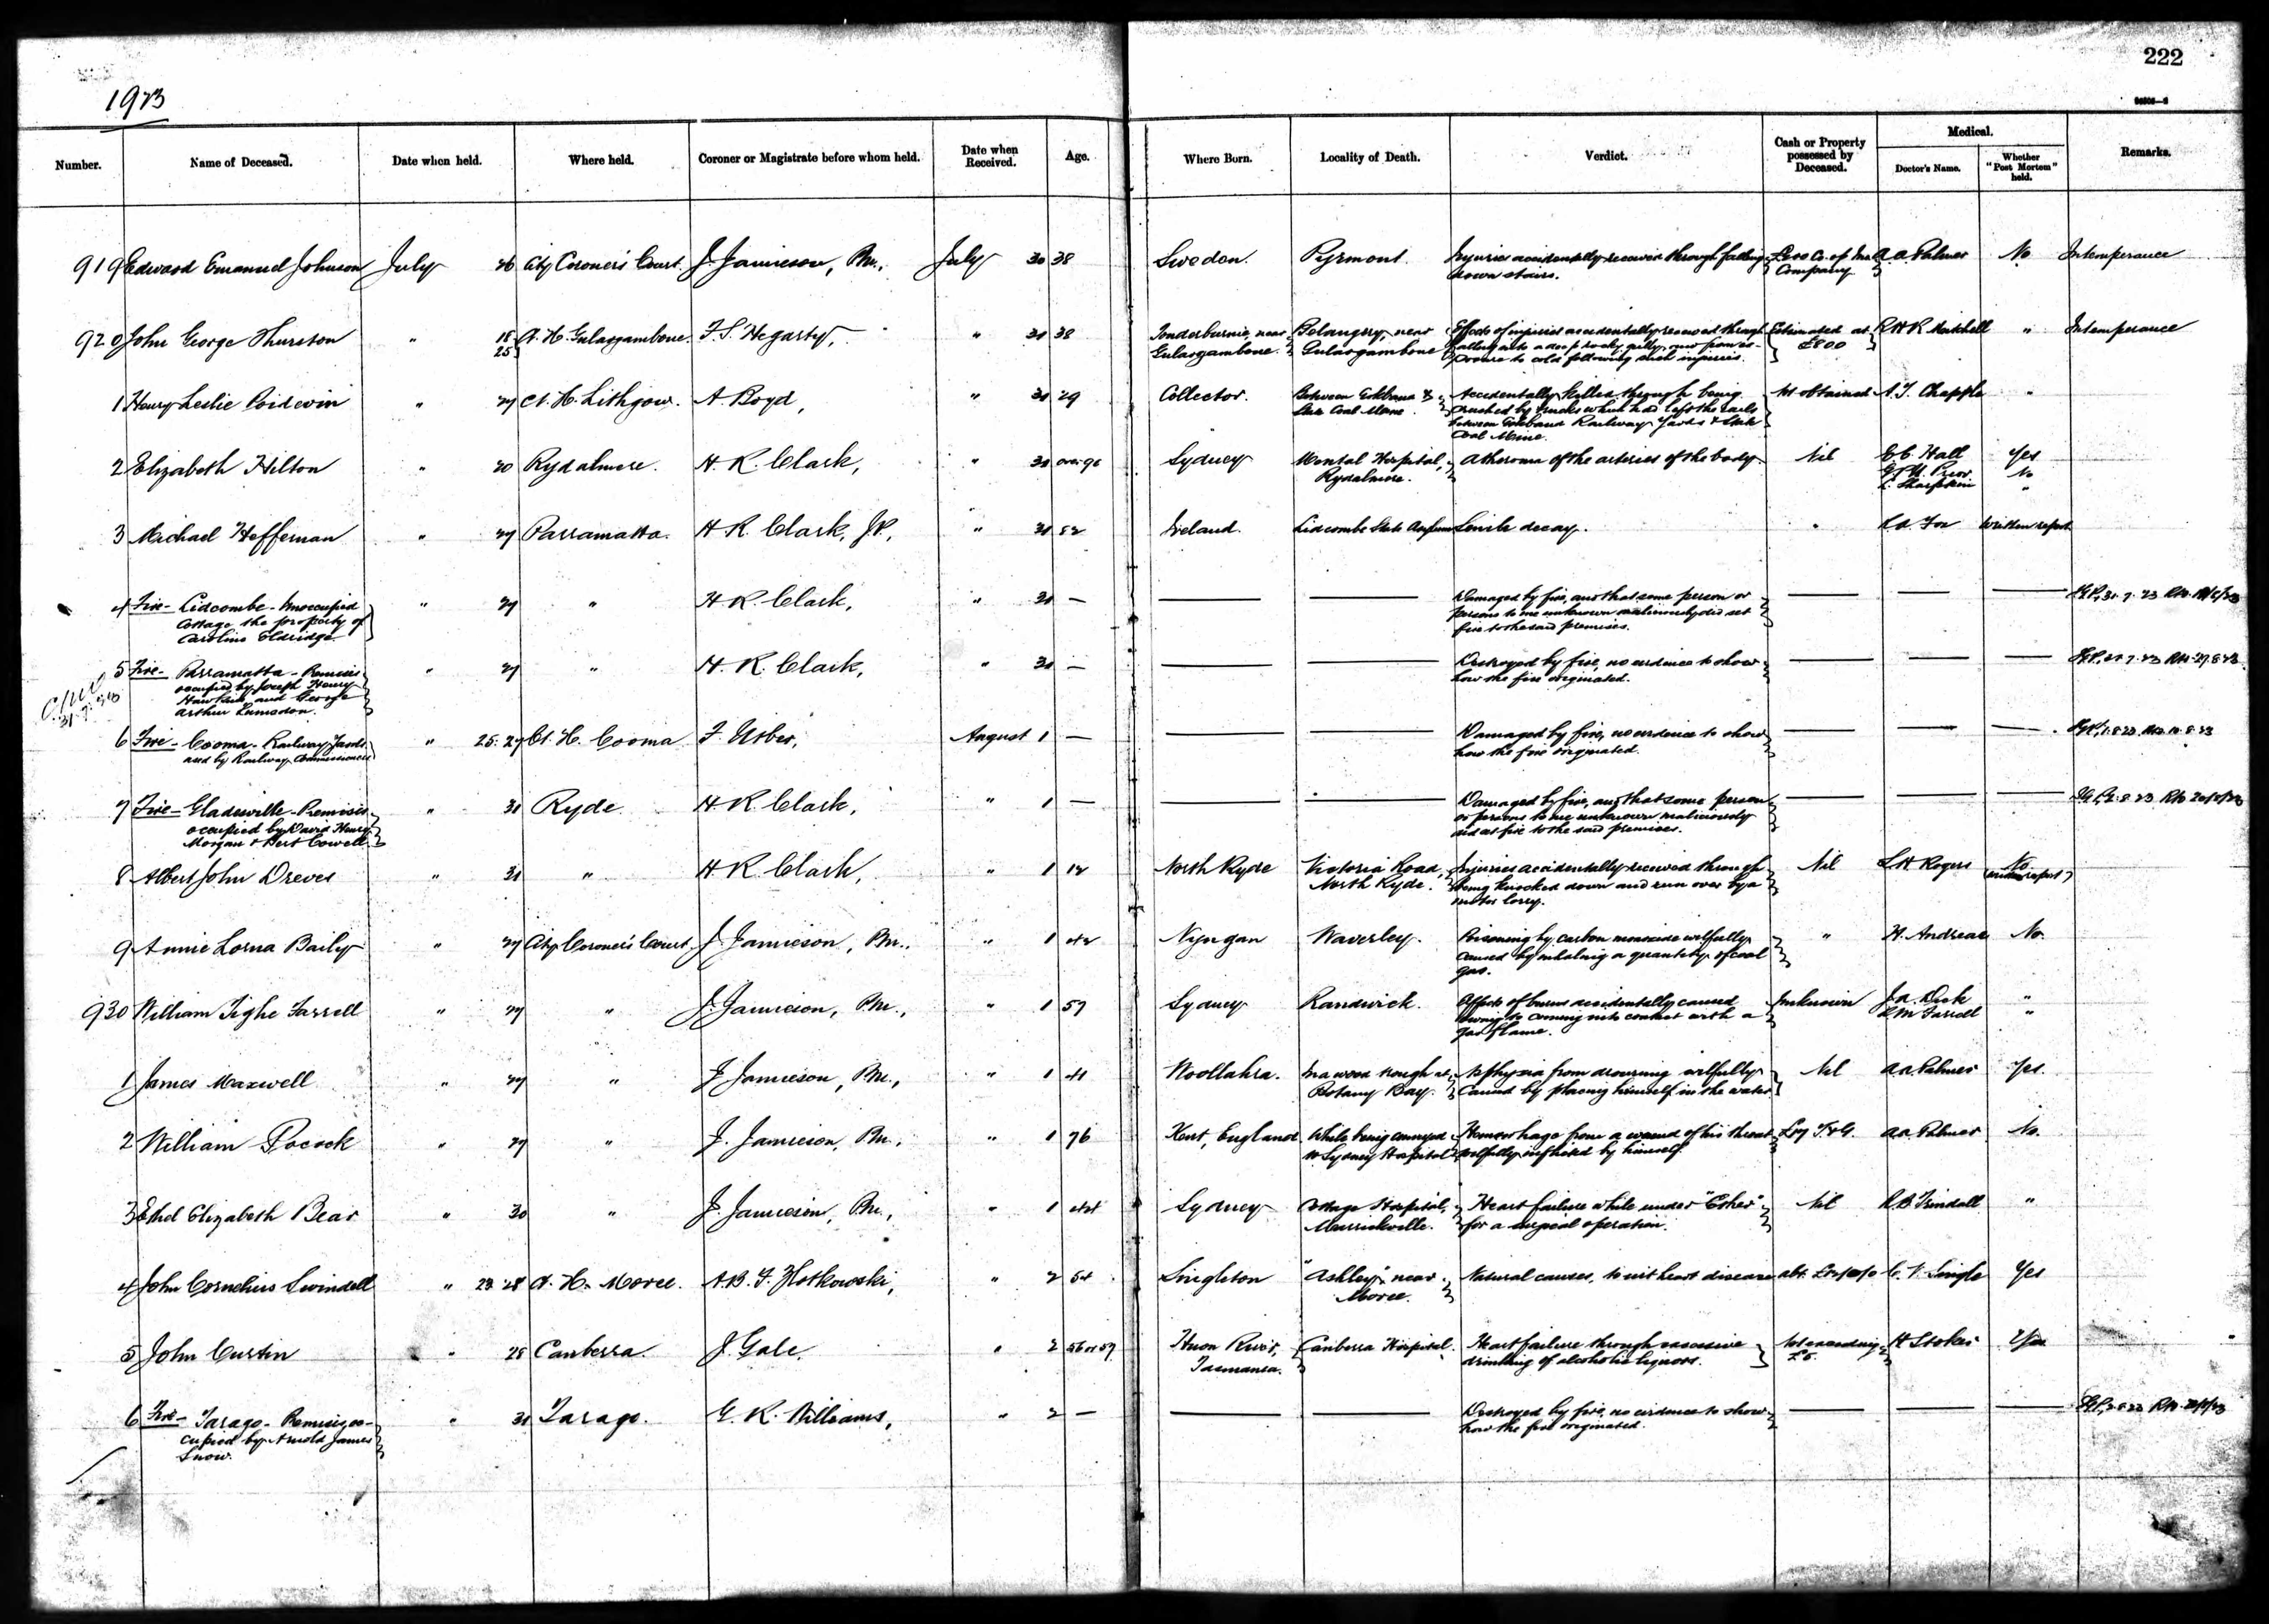 222
1923
Number. Name of Deceased. Date when held. Where held. Coroner or Magistrate before whom held. Date when Received. Age. Where Born. Locality of Death. Verdict. Cash or Property possessed by Deceased. Medical. Doctor's Name. Whether "Post Mortem" held. Remarks.
919 Edward Emanuel Johnson July 26 City Coroner's Court. J. Jamieson, P.M., July 30 38 Sweden. Pyrmont. Injuries accidentally received through falling
down stairs. Company A.A. Palmer No Intemperance
920 John George Thurston " 18 C.H. Gulargambone. F.S. Hegarty, " 30 38 near Gulargambone. near Gulargambone Effects of injuries accidentally received through
25 falling into a deep rocky gully, and from ex-
posure to cold following such injuries. Estimated at £800 R H R Mitchell " Intemperance
1 Henry Leslie Poidevin " 27 Ct. H. Lithgow. A. Boyd, " 30 29 Collector. Between &
State Coal Mine. Accidentally killed through being
crushed by trucks which had left the rails
between Railway Yards & State
Coal Mine. Not obtained Chapple "
2 Elizabeth Hilton " 20 Rydalmere. H. R. Clark, " 30 over 90 Sydney Mental Hospital,
Rydalmere. Atheroma of the arteries of the body. Nil E.C. Hall Yes
Prior No
"
3 Michael Heffernan " 27 Parramatta. H R. Clark, J.P., " 30 82 Ireland. Lidcombe State Asylum Senile decay. " Fox Written report
4 Fire - Lidcombe - Unoccupied
Cottage the property of
Caroline Eldridge. " 27 " H R. Clark, " 30 — Damaged by fire, and that some person or
persons to me unknown maliciously did set
fire to the said premises.
5 Fire - Parramatta - Premises
occupied by Joseph Henry
Hawkins and George
Arthur Lumsdon. " 27 " H. R. Clark, " 30 — Destroyed by fire, no evidence to show
how the fire originated.
6 Fire - Cooma - Railway Yards
used by Railway Commissioners " 25. 27 Ct. H. Cooma August 1 — Damaged by fire, no evidence to show
how the fire originated.
7 Fire - Gladesville - Premises
occupied by David Henry
Morgan & Bert Cowell. " 31 Ryde H. R. Clark, " 1 — Damaged by fire, and that some person
or persons to me unknown maliciously
did set fire to the said premises.
8 Albert John Dreves " 31 " H R. Clark, " 1 12 North Ryde Victoria Road,
North Ryde. Injuries accidentally received through
being knocked down and run over by a
motor lorry. Nil Rogers No
(written report)
9 Annie Lorna Baily " 27 City Coroner's Court J. Jamieson, P.M., " 1 42 Nyngan Waverley. Poisoning by carbon monoxide wilfully
caused by inhaling a quantity of coal
gas. " H. Andreas No.
930 William Tighe Farrell " 27 " J. Jamieson, P.M., " 1 57 Sydney Randwick. Effects of burns accidentally caused
owing to coming into contact with a
gas flame. Unknown J.A. Dick "
Farrell "
1 James Maxwell " 27 " J. Jamieson, P.M., " 1 41 Woollahra. Botany Bay. Asphyxia from drowning wilfully
caused by placing himself in the water. Nil A.A. Palmer Yes.
2 William Pocock " 27 " J. Jamieson, P.M., " 1 76 Kent, England While being conveyed
to Sydney Hospital Hemorrhage from a wound of his throat
wilfully inflicted by himself. A.A. Palmer No.
3 Ethel Elizabeth Bear " 30 " J. Jamieson, P.M., " 1 44 Sydney Cottage Hospital,
Marrickville. Heart failure while under "Ether"
for a surgical operation. Nil R.B. Trindall "
4 John Cornelius Swindell " 23 28 C. H. Moree. A.B. F. Zlotkowski, " 2 54 Singleton "Ashley" near
Moree. Natural causes, to wit heart disease Single Yes
5 John Curtin " 28 Canberra. J. Gale. " 2 56 or 57 Huon River,
Tasmania. Canberra Hospital. Heart failure through excessive
drinking of alcoholic liquors. Not exceeding
£5. H Stokes
6 Fire - Tarago - Premises oc-
cupied by Arnold James
Snow. " 31 Tarago. E. R. Williams, " 2 — Destroyed by fire, no evidence to show
how the fire originated.